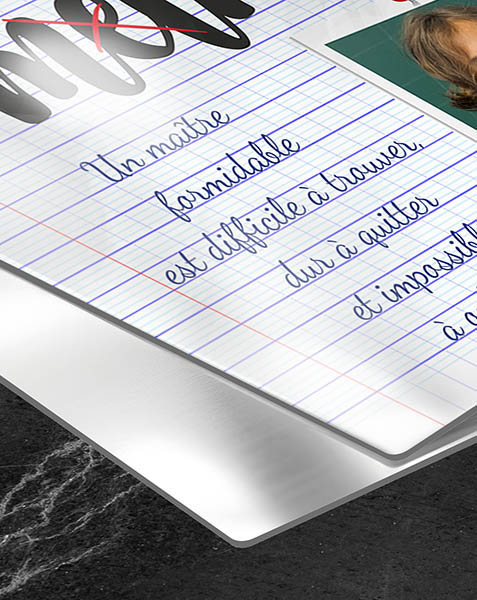 Un maître
formidable
est difficile à trouver,
dur à quitter
et impossible
à